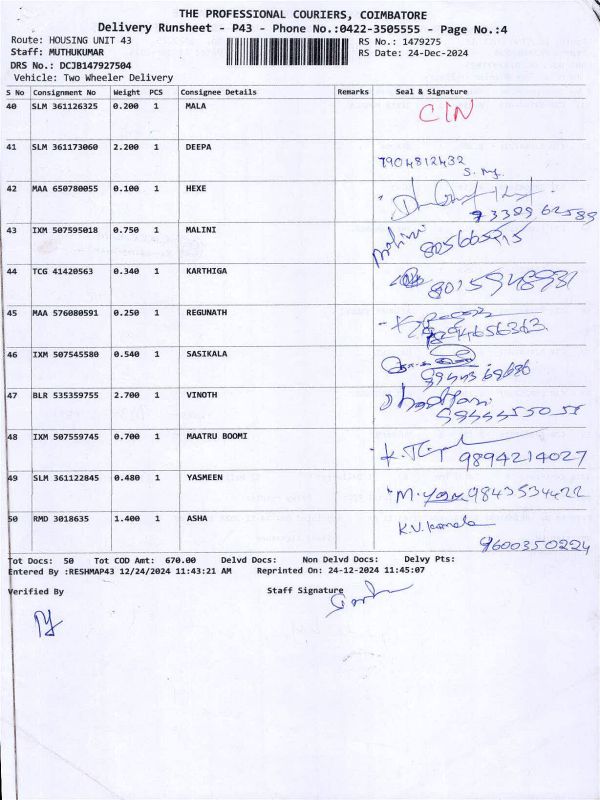 THE PROFESSIONAL COURIERS, COIMBATORE
Delivery Runsheet - P43 - Phone No.:0422-3505555 - Page No.:4
Route: HOUSING UNIT 43 RS No.: 1479275
Staff: MUTHUKUMAR RS Date: 24-Dec-2024
DRS No.: DCJB147927504
Vehicle: Two Wheeler Delivery
S No Consignment No Weight PCS Consignee Details Remarks Seal & Signature
40 SLM 361126325 0.200 1 MALA CIN
41 SLM 361173060 2.200 1 DEEPA
7904812432
42 MAA 650780055 0.100 1 HEXE
7338962589
43 IXM 507595018 0.750 1 MALINI malini
44 TCG 41420563 0.340 1 KARTHIGA
8015948981
45 MAA 576080591 0.250 1 REGUNATH
46 IXM 507545580 0.540 1 SASIKALA
47 BLR 535359755 2.700 1 VINOTH
48 IXM 507559745 0.700 1 MAATRU BOOMI
9894214027
49 SLM 361122845 0.480 1 YASMEEN
9843534422
50 RMD 3018635 1.400 1 ASHA K.V. Kamala
9600350224
Tot Docs: 50 Tot COD Amt: 670.00 Delvd Docs: Non Delvd Docs: Delvy Pts:
Entered By :RESHMAP43 12/24/2024 11:43:21 AM Reprinted On: 24-12-2024 11:45:07
Verified By Staff Signature